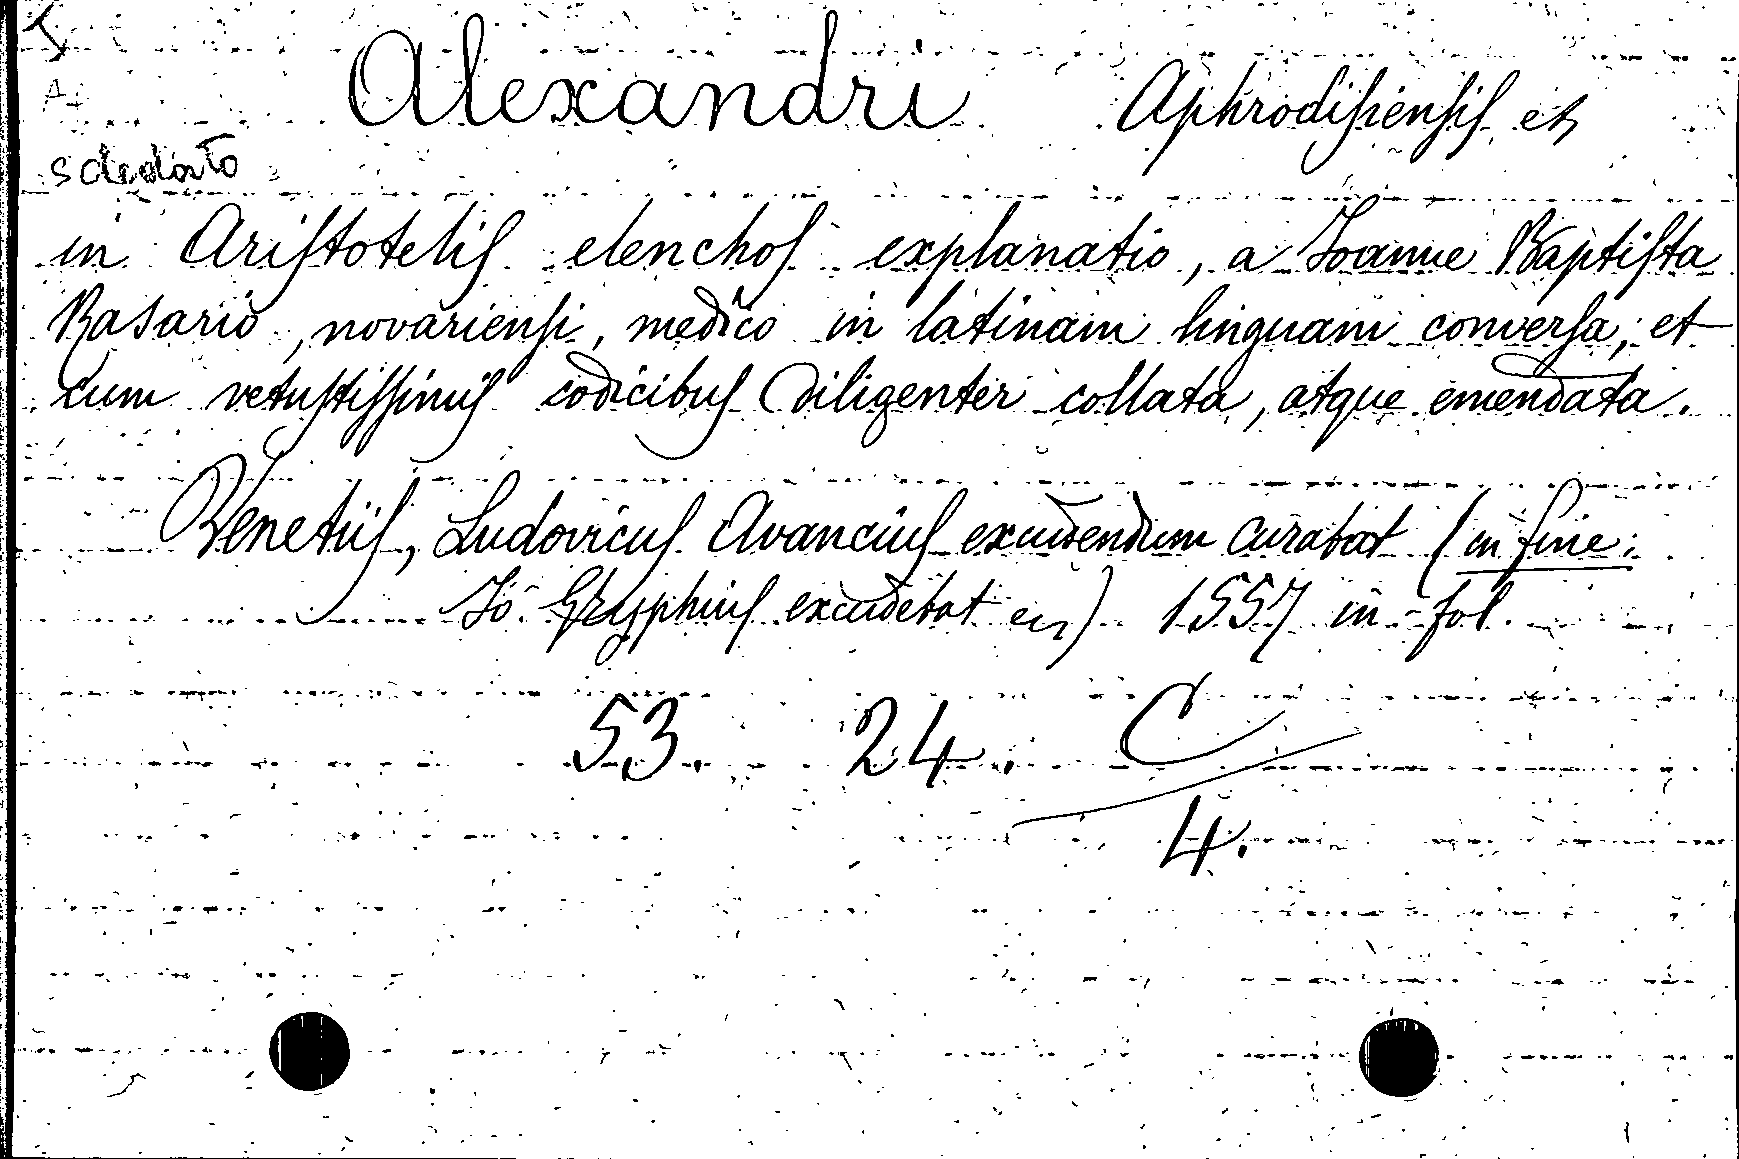 Alexandri Aphrodisiensis et
schedato
in Aristotelis elenchos explanatio, a Joanne Baptista
Rasario, novariensi, medico in latinam linguam conversa, et
cum vetustissimis codicibus diligenter collata, atque emendata.
Venetiis, Ludovicus Avancius excudendum curabat (in fine:
Jo. Gryphius excudebat etc) 1557 in-fol.
53. 24. C
4.